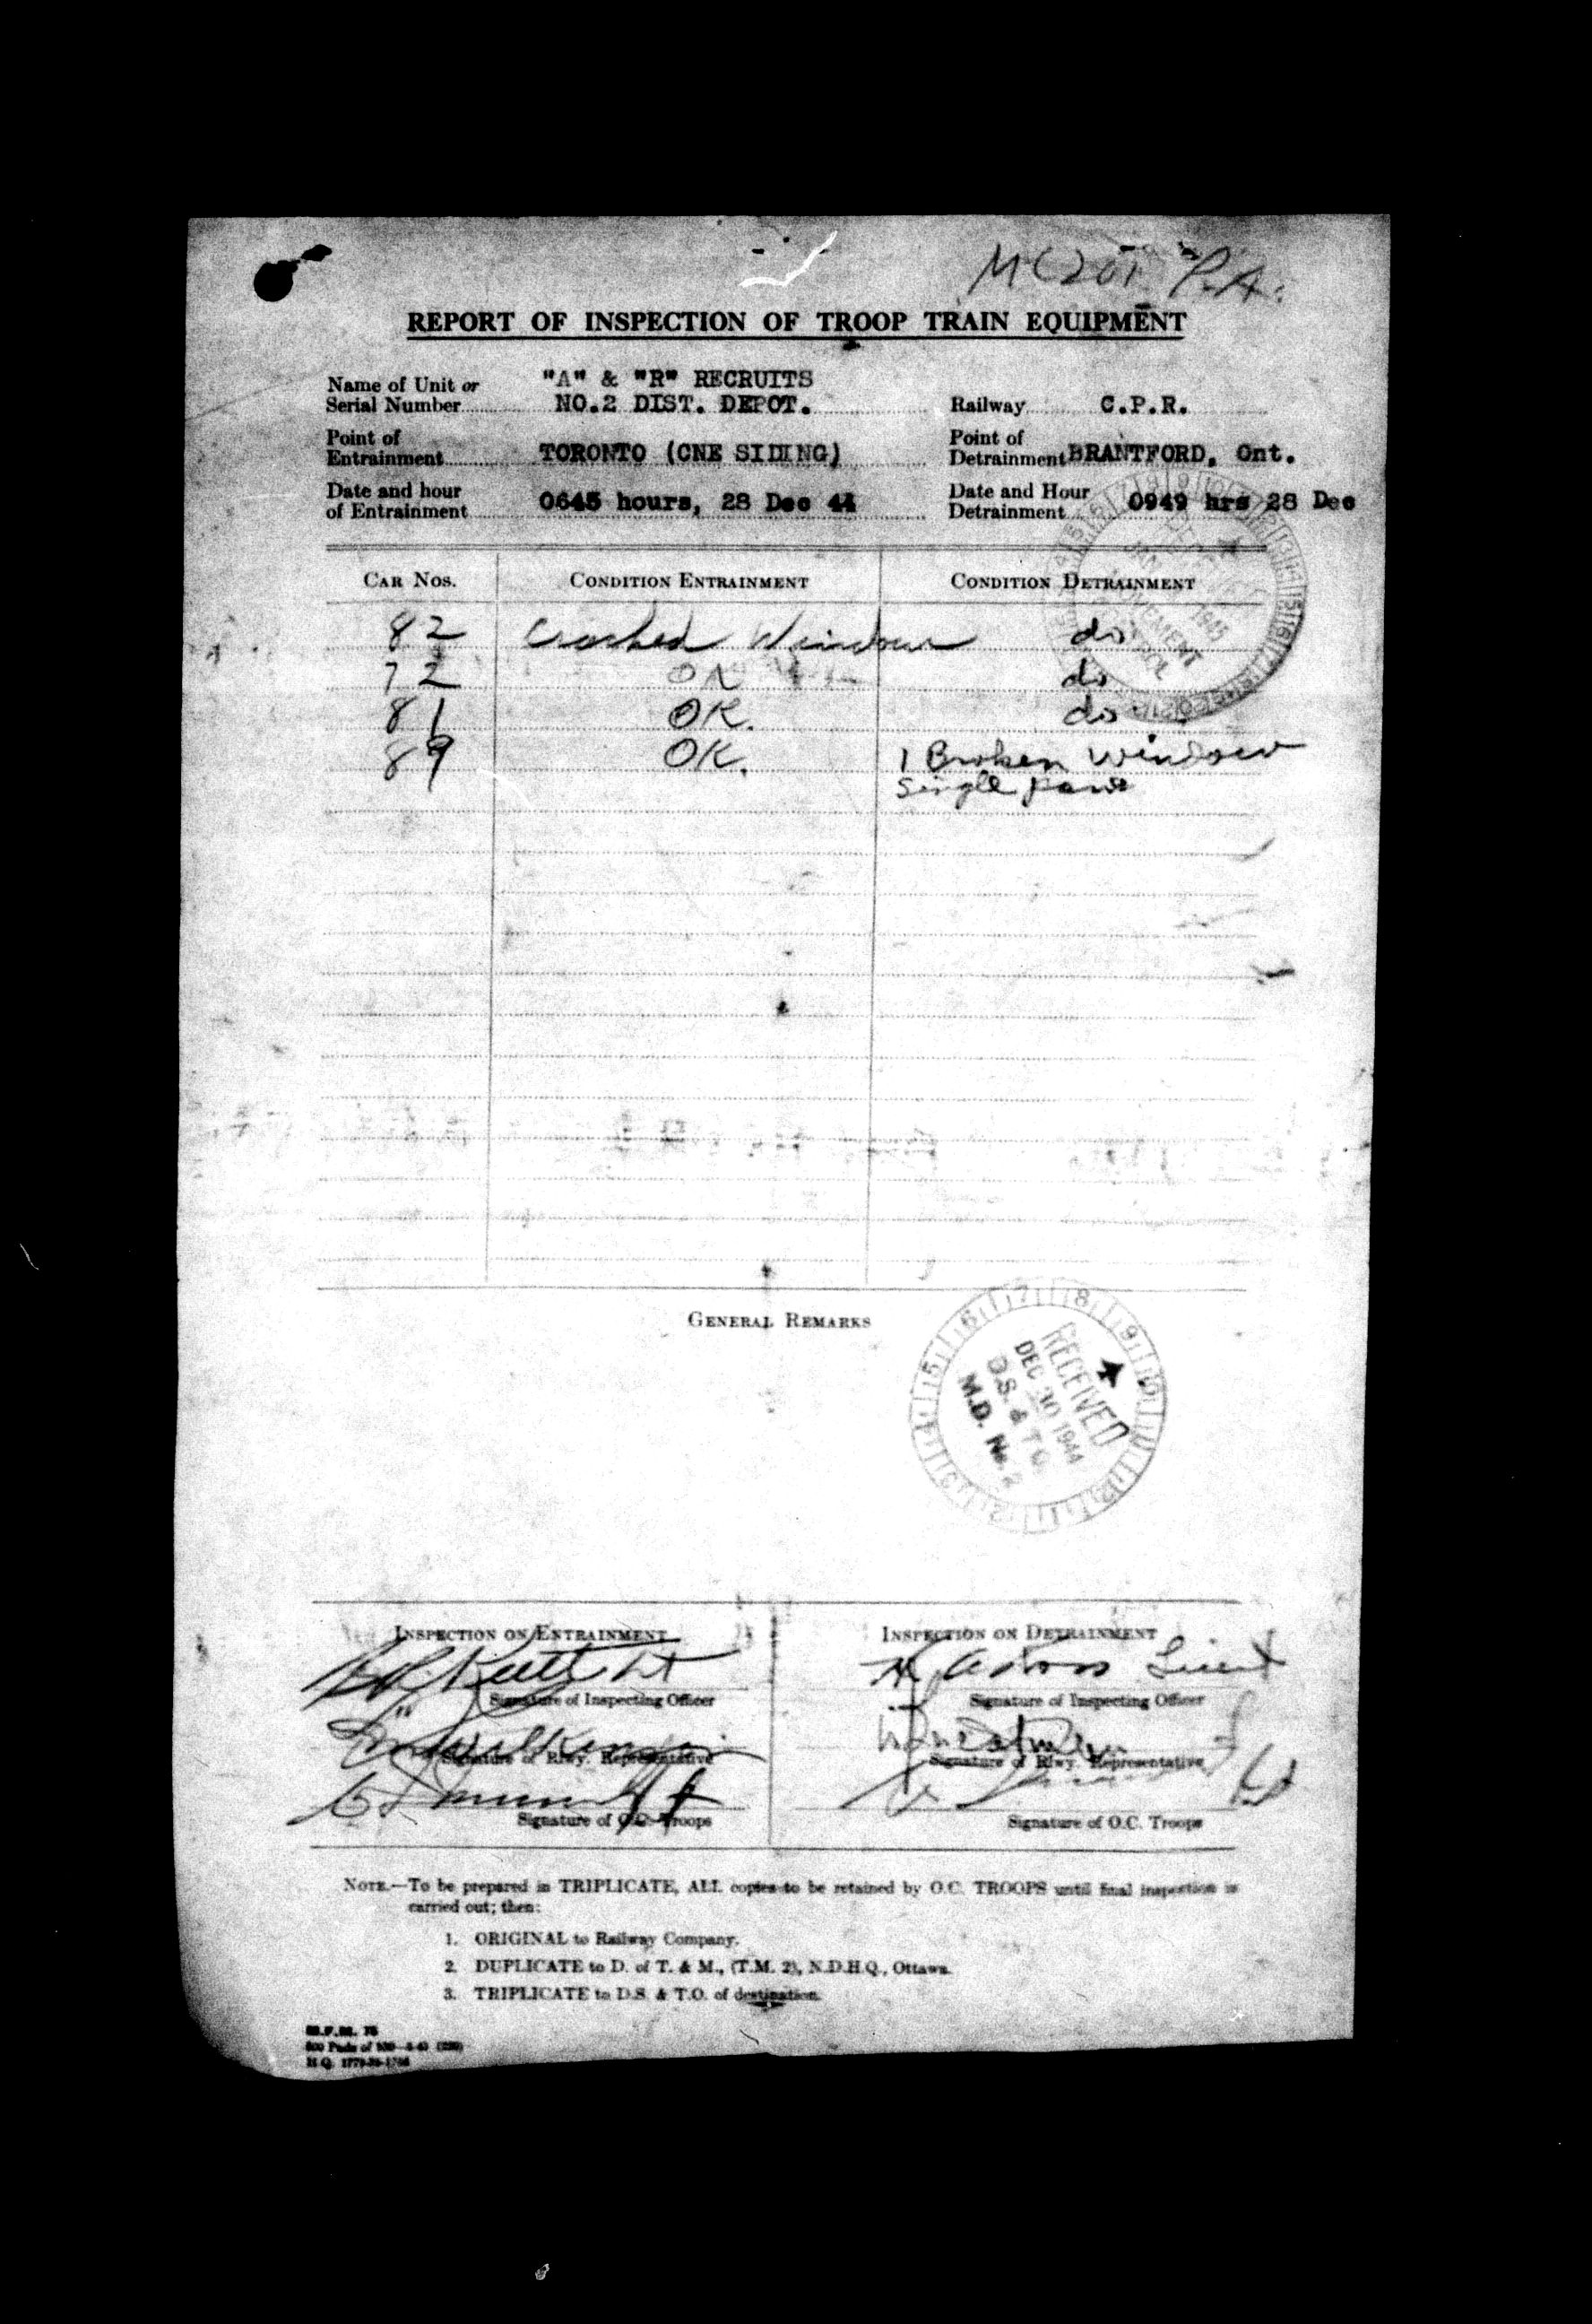 MC201 P.A.
REPORT OF INSPECTION OF TROOP TRAIN EQUIPMENT
Name of Unit or Serial Number "A" & "R" RECRUITS
NO.2 DIST. DEPOT.
Railway C.P.R.
Point of Entrainment TORONTO (CNE SIDING)
Point of Detrainment BRANTFORD, Ont.
Date and hour of Entrainment 0645 hours, 28 Dec 44
Date and Hour Detrainment 0949 hrs 28 Dec
CAR NOS. CONDITION ENTRAINMENT CONDITION DETRAINMENT
82 Cracked Window do
72 OK do
81 OK. do
89 OK. 1 Broken Window
Single pane
1945
MOVEMENT
GENERAL REMARKS
RECEIVED
DEC 30 1944
D.S. & T.O.
M.D. No. 2
INSPECTION ON ENTRAINMENT INSPECTION ON DETRAINMENT
Lt Lieut
Signature of Inspecting Officer Signature of Inspecting Officer
Wilkinson
Signature of Rlwy. Representative Signature of Rlwy. Representative
Lt
Signature of O.C. Troops Signature of O.C. Troops
NOTE.—To be prepared in TRIPLICATE, ALL copies to be retained by O.C. TROOPS until final inspection is
carried out; then:
1. ORIGINAL to Railway Company.
2. DUPLICATE to D. of T. & M., (T.M. 2), N.D.H.Q., Ottawa.
3. TRIPLICATE to D.S. & T.O. of destination.
M.F.M. 75
500 Pads of 100
H.Q.